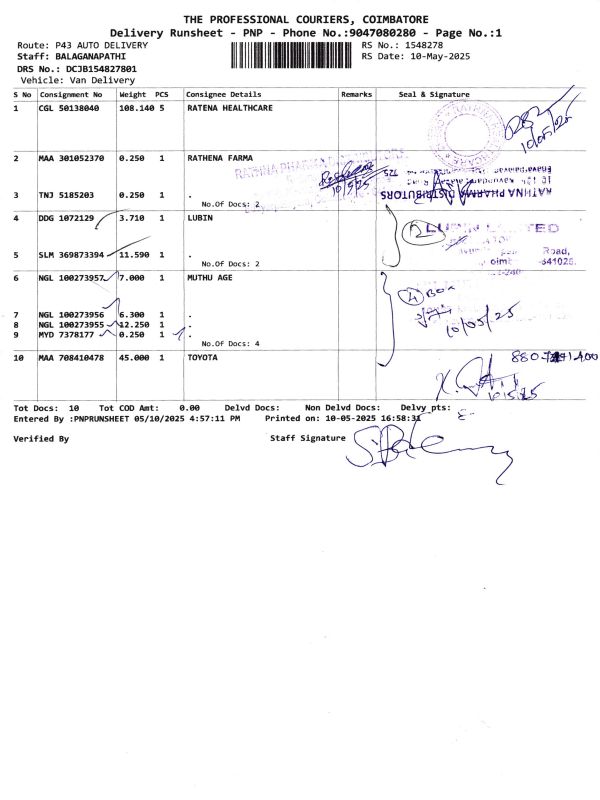 THE PROFESSIONAL COURIERS, COIMBATORE
Delivery Runsheet - PNP - Phone No.:9047080280 - Page No.:1
Route: P43 AUTO DELIVERY RS No.: 1548278
Staff: BALAGANAPATHI RS Date: 10-May-2025
DRS No.: DCJB154827801
Vehicle: Van Delivery
S No Consignment No Weight PCS Consignee Details Remarks Seal & Signature
1 CGL 50138040 108.140 5 RATENA HEALTHCARE
10/05/25
2 MAA 301052370 0.250 1 RATHENA FARMA
RATHNA PHARMA DISTRIBUTORS
10/5/25
3 TNJ 5185203 0.250 1 .
No.Of Docs: 2
RATHNA PHARMA DISTRIBUTORS
4 DDG 1072129 3.710 1 LUBIN
2
LIMITED
5 SLM 369873394 11.590 1 .
Road,
-641025.
No.Of Docs: 2
6 NGL 100273957 7.000 1 MUTHU AGE
4 Box
7 NGL 100273956 6.300 1 .
8 NGL 100273955 12.250 1 .
9 MYD 7378177 0.250 1 .
10/05/25
No.Of Docs: 4
10 MAA 708410478 45.000 1 TOYOTA
10/5/25
Tot Docs: 10 Tot COD Amt: 0.00 Delvd Docs: Non Delvd Docs: Delvy pts:
Entered By :PNPRUNSHEET 05/10/2025 4:57:11 PM Printed on: 10-05-2025 16:58:31
Verified By Staff Signature